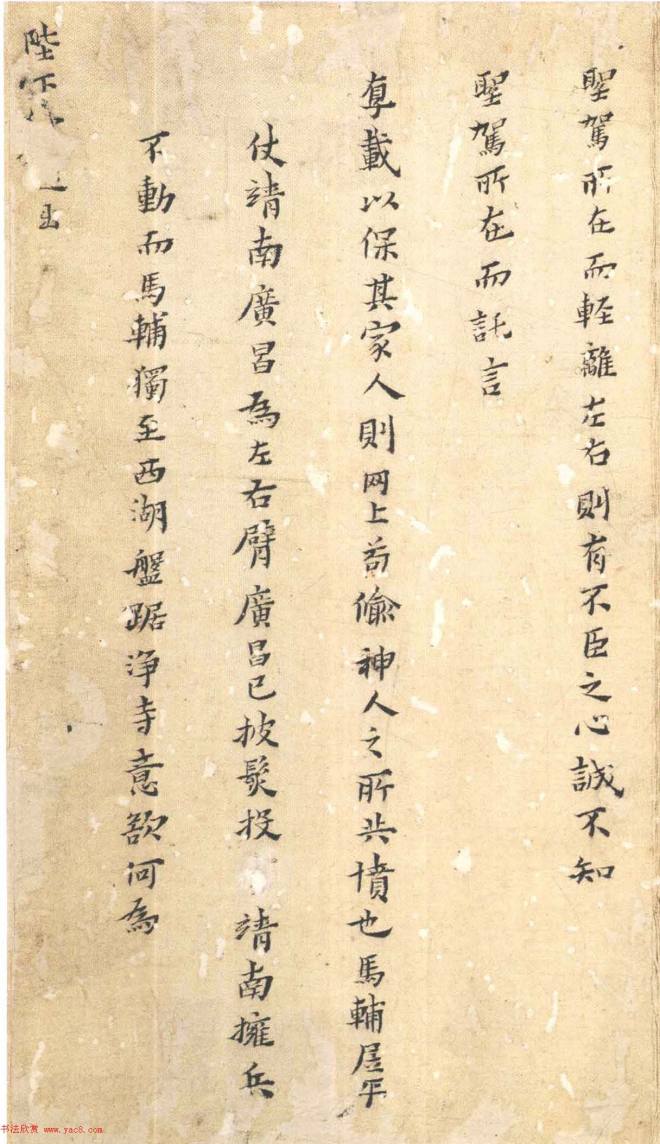 聖駕所在而輕離左右則有不臣之心誠不知
聖駕所在而託言
載以保其家人則罔上苟偷神人之所共憤也馬輔居平
仗靖南廣昌為左右臂廣昌已披髮投靖南擁兵
不動而馬輔獨至西湖盤踞淨寺意欲何為
陛下
出
书法欣赏 www.yac8.com